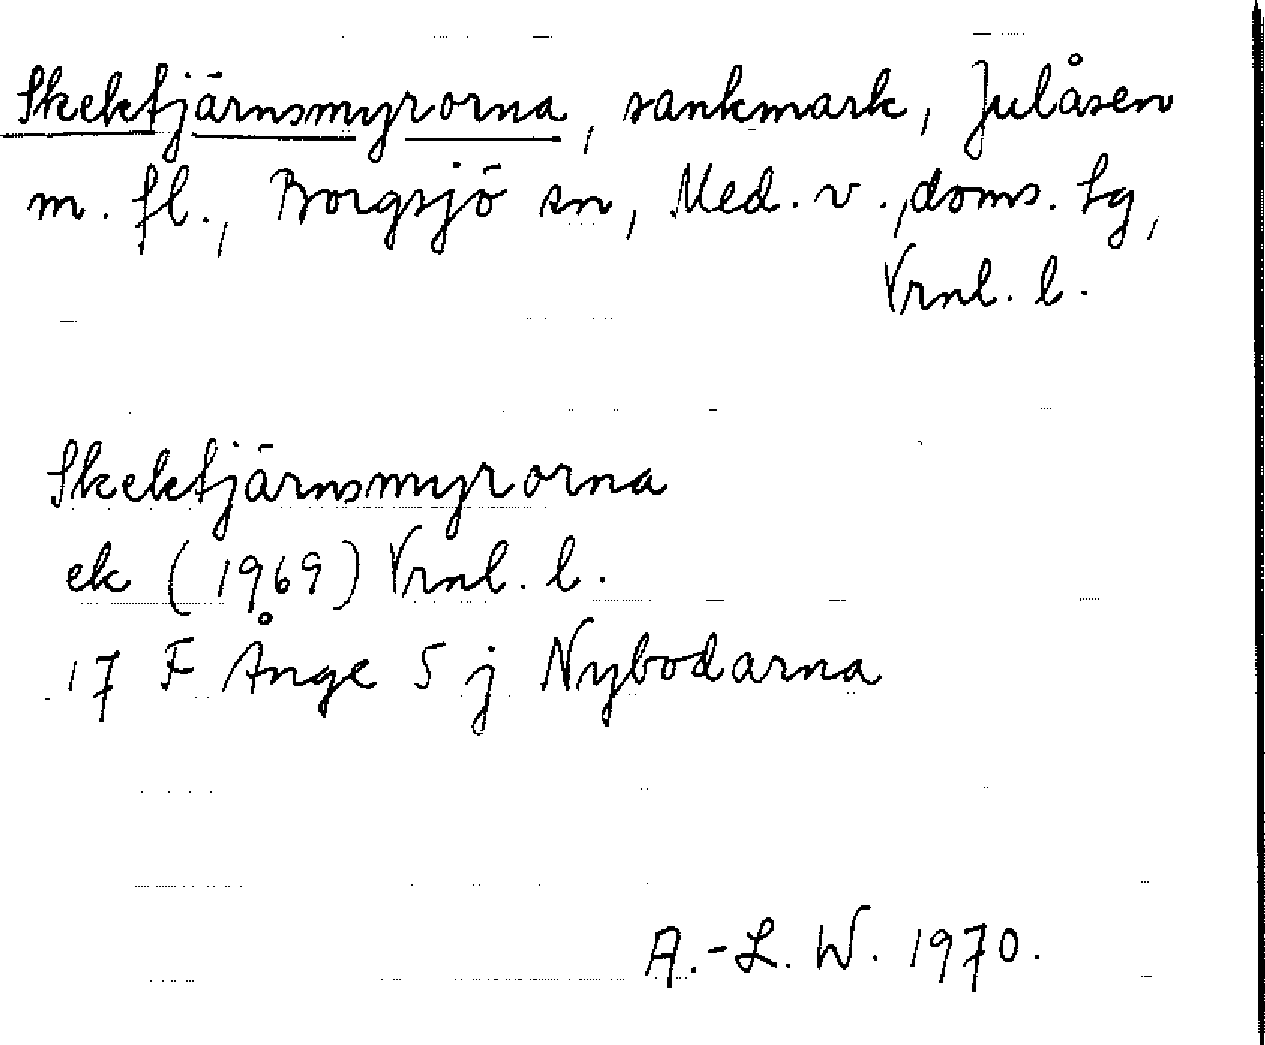 Skektjärnsmyrorna, sankmark, Julåsen
m. fl., Borgsjö sn, Med. v., doms. tg,
Vrnl. l.
Skektjärnsmyrorna
ek (1969) Vrnl. l.
17 F Ånge 5 j Nybodarna
A.-L. W. 1970.